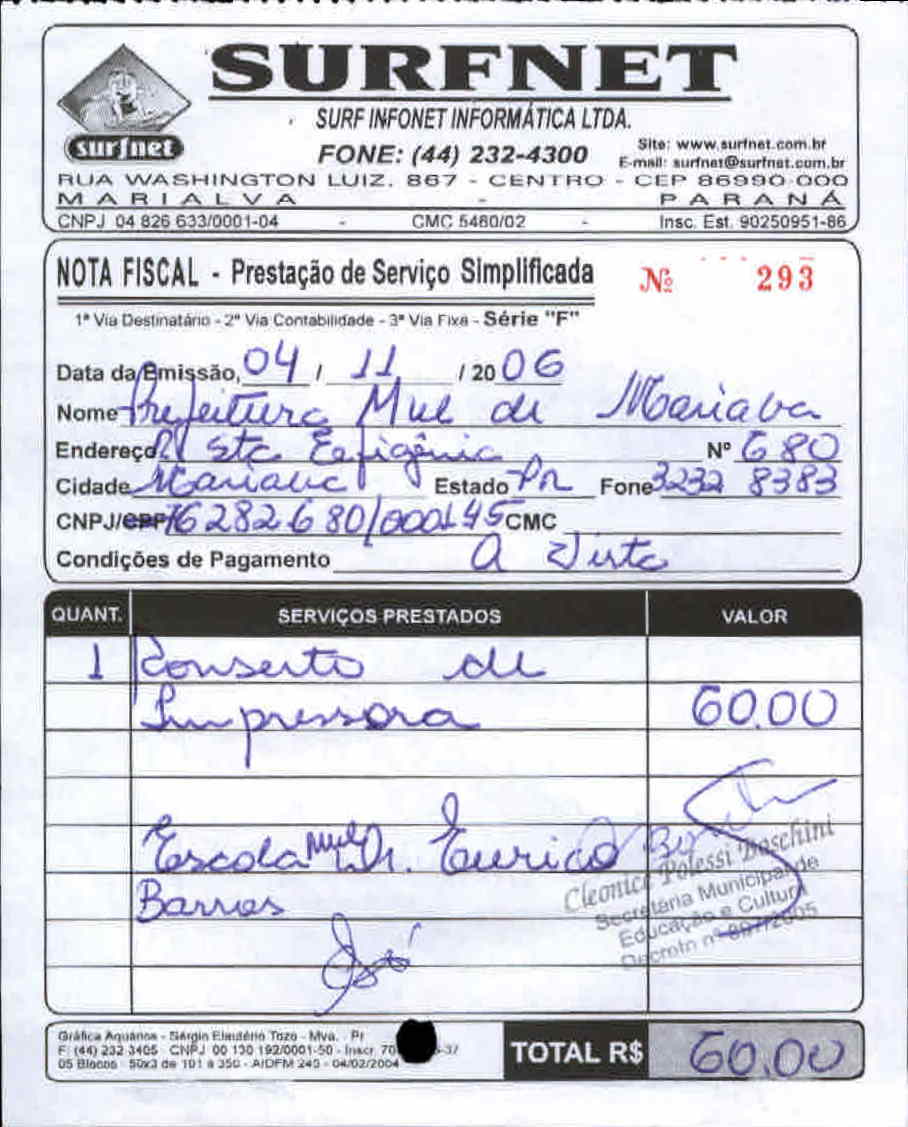 SURFNET
surfnet
SURF INFONET INFORMÁTICA LTDA.
FONE: (44) 232-4300
Site: www.surfnet.com.br
E-mail: surfnet@surfnet.com.br
RUA WASHINGTON LUIZ, 867 - CENTRO - CEP 86990-000
MARIALVA - PARANÁ
CNPJ 04 826 633/0001-04 - CMC 5480/02 - Insc. Est. 90250951-86
NOTA FISCAL - Prestação de Serviço Simplificada Nº 293
1ª Via Destinatário - 2ª Via Contabilidade - 3ª Via Fixa - Série "F"
Data da Emissão, 04 / 11 / 20 06
Nome Prefeitura Mul de Marialva
Endereço R Sta Eefigênia Nº 680
Cidade Marialva Estado Pr Fone 3232 8383
CNPJ/CPF 76282680/0001 45 CMC
Condições de Pagamento A Vista
QUANT. SERVIÇOS PRESTADOS VALOR
1 Conserto de
Impressora 60,00
Escola Mul Dr. Eurico
Barros
Cleonice Polessi Boschini
Secretária Municipal de
Educação e Cultura
Decreto nº 897/2005
Gráfica Aquários - Sérgio Eleutério Tozo - Mva. - Pr
F: (44) 232 3405 - CNPJ 00 130 192/0001-50 - Inscr 70 -37
05 Blocos - 50x3 de 101 a 350 - AIDFM 245 - 04/02/2004
TOTAL R$ 60,00